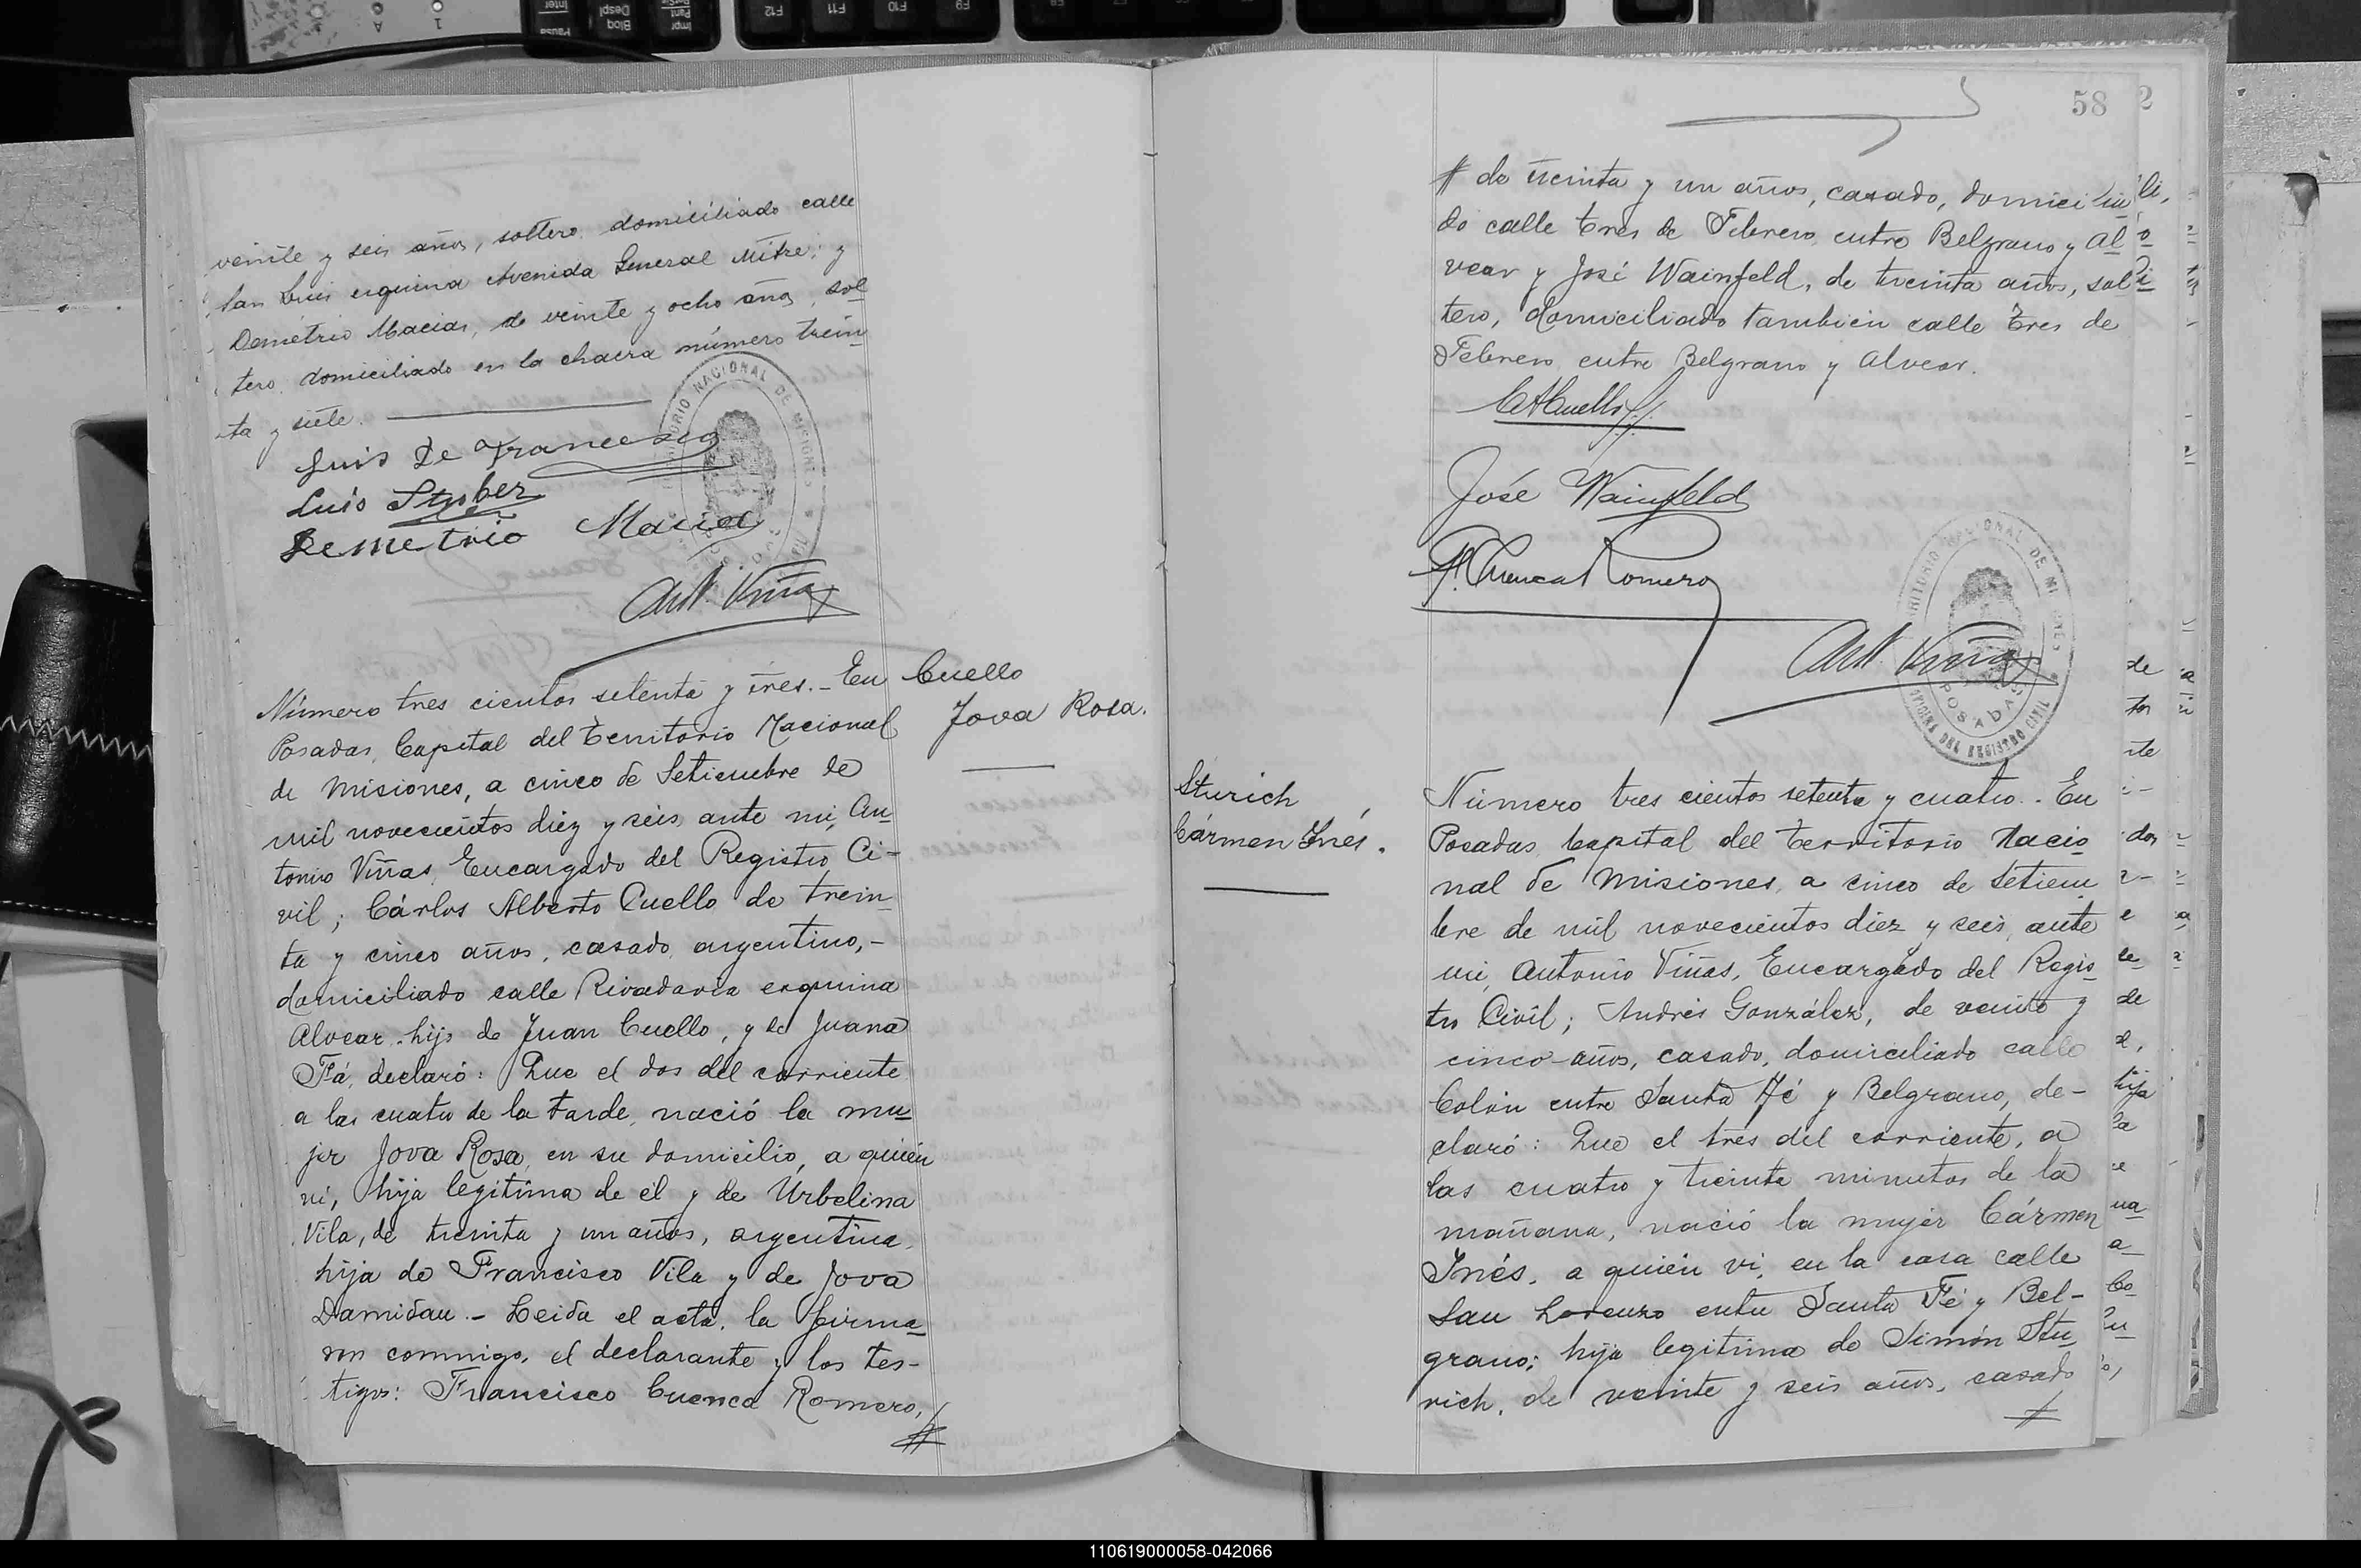 veinte y seis años, soltero, domiciliado calle
San Luis esquina Avenida General Mitre; y
Demétrio Macias, de veinte y ocho años, sol
tero, domiciliado en la chacra número trein
ta y siete.
Luis De Francesco
Luis Stuber
Demetrio Macias
Ant. Viñas
TERRITORIO NACIONAL DE MISIONES
Cuello
Jova Rosa.
Número tres cientos setenta y tres.- En
Posadas, Capital del Territorio Nacional
de Misiones, a cinco de Setiembre de
mil novecientos diez y seis, ante mi, An
tonio Viñas, Encargado del Registro Ci-
vil; Cárlos Alberto Cuello de trein
ta y cinco años, casado, argentino,-
domiciliado calle Rivadavia esquina
Alvear, hijo de Juan Cuello, y de Juana
Fá, declaró: Que el dos del corriente
a las cuatro de la tarde, nació la mu
jer Jova Rosa, en su domicilio, a quien
vi, hija legitima de él y de Urbelina
Vila, de treinta y un años, argentina,
hija de Francisco Vila y de Jova
Damidau.- Leida el acta, la firma
ron conmigo, el declarante y los tes-
tigos: Francisco Cuenca Romero, #
58
# de treinta y un años, casado, domicilia
do calle Tres de Febrero entre Belgrano y Al
vear y José Wainfeld, de treinta años, sol
tero, domiciliado tambien calle Tres de
Febrero entre Belgrano y Alvear.
CACuello
José Wainfeld
F. Cuenca Romero
Ant. Viñas
TERRITORIO NACIONAL DE MISIONES
POSADAS
OFICINA DEL REGISTRO CIVIL
Sturich
Cármen Inés.
Número tres cientos setenta y cuatro.- En
Posadas, Capital del Territorio Nacio
nal de Misiones, a cinco de Setiem
bre de mil novecientos diez y seis, ante
mi, Antonio Viñas, Encargado del Regis
tro Civil; Andrés González, de veinte y
cinco años, casado, domiciliado calle
Colón entre Santa Fé y Belgrano, de-
claró: Que el tres del corriente, a
las cuatro y treinta minutos de la
mañana, nació la mujer Cármen
Inés, a quién vi, en la casa calle
San Lorenzo entre Santa Fé y Bel-
grano; hija legitima de Simón Stu
rich, de veinte y seis años, casado
#
110619000058-042066